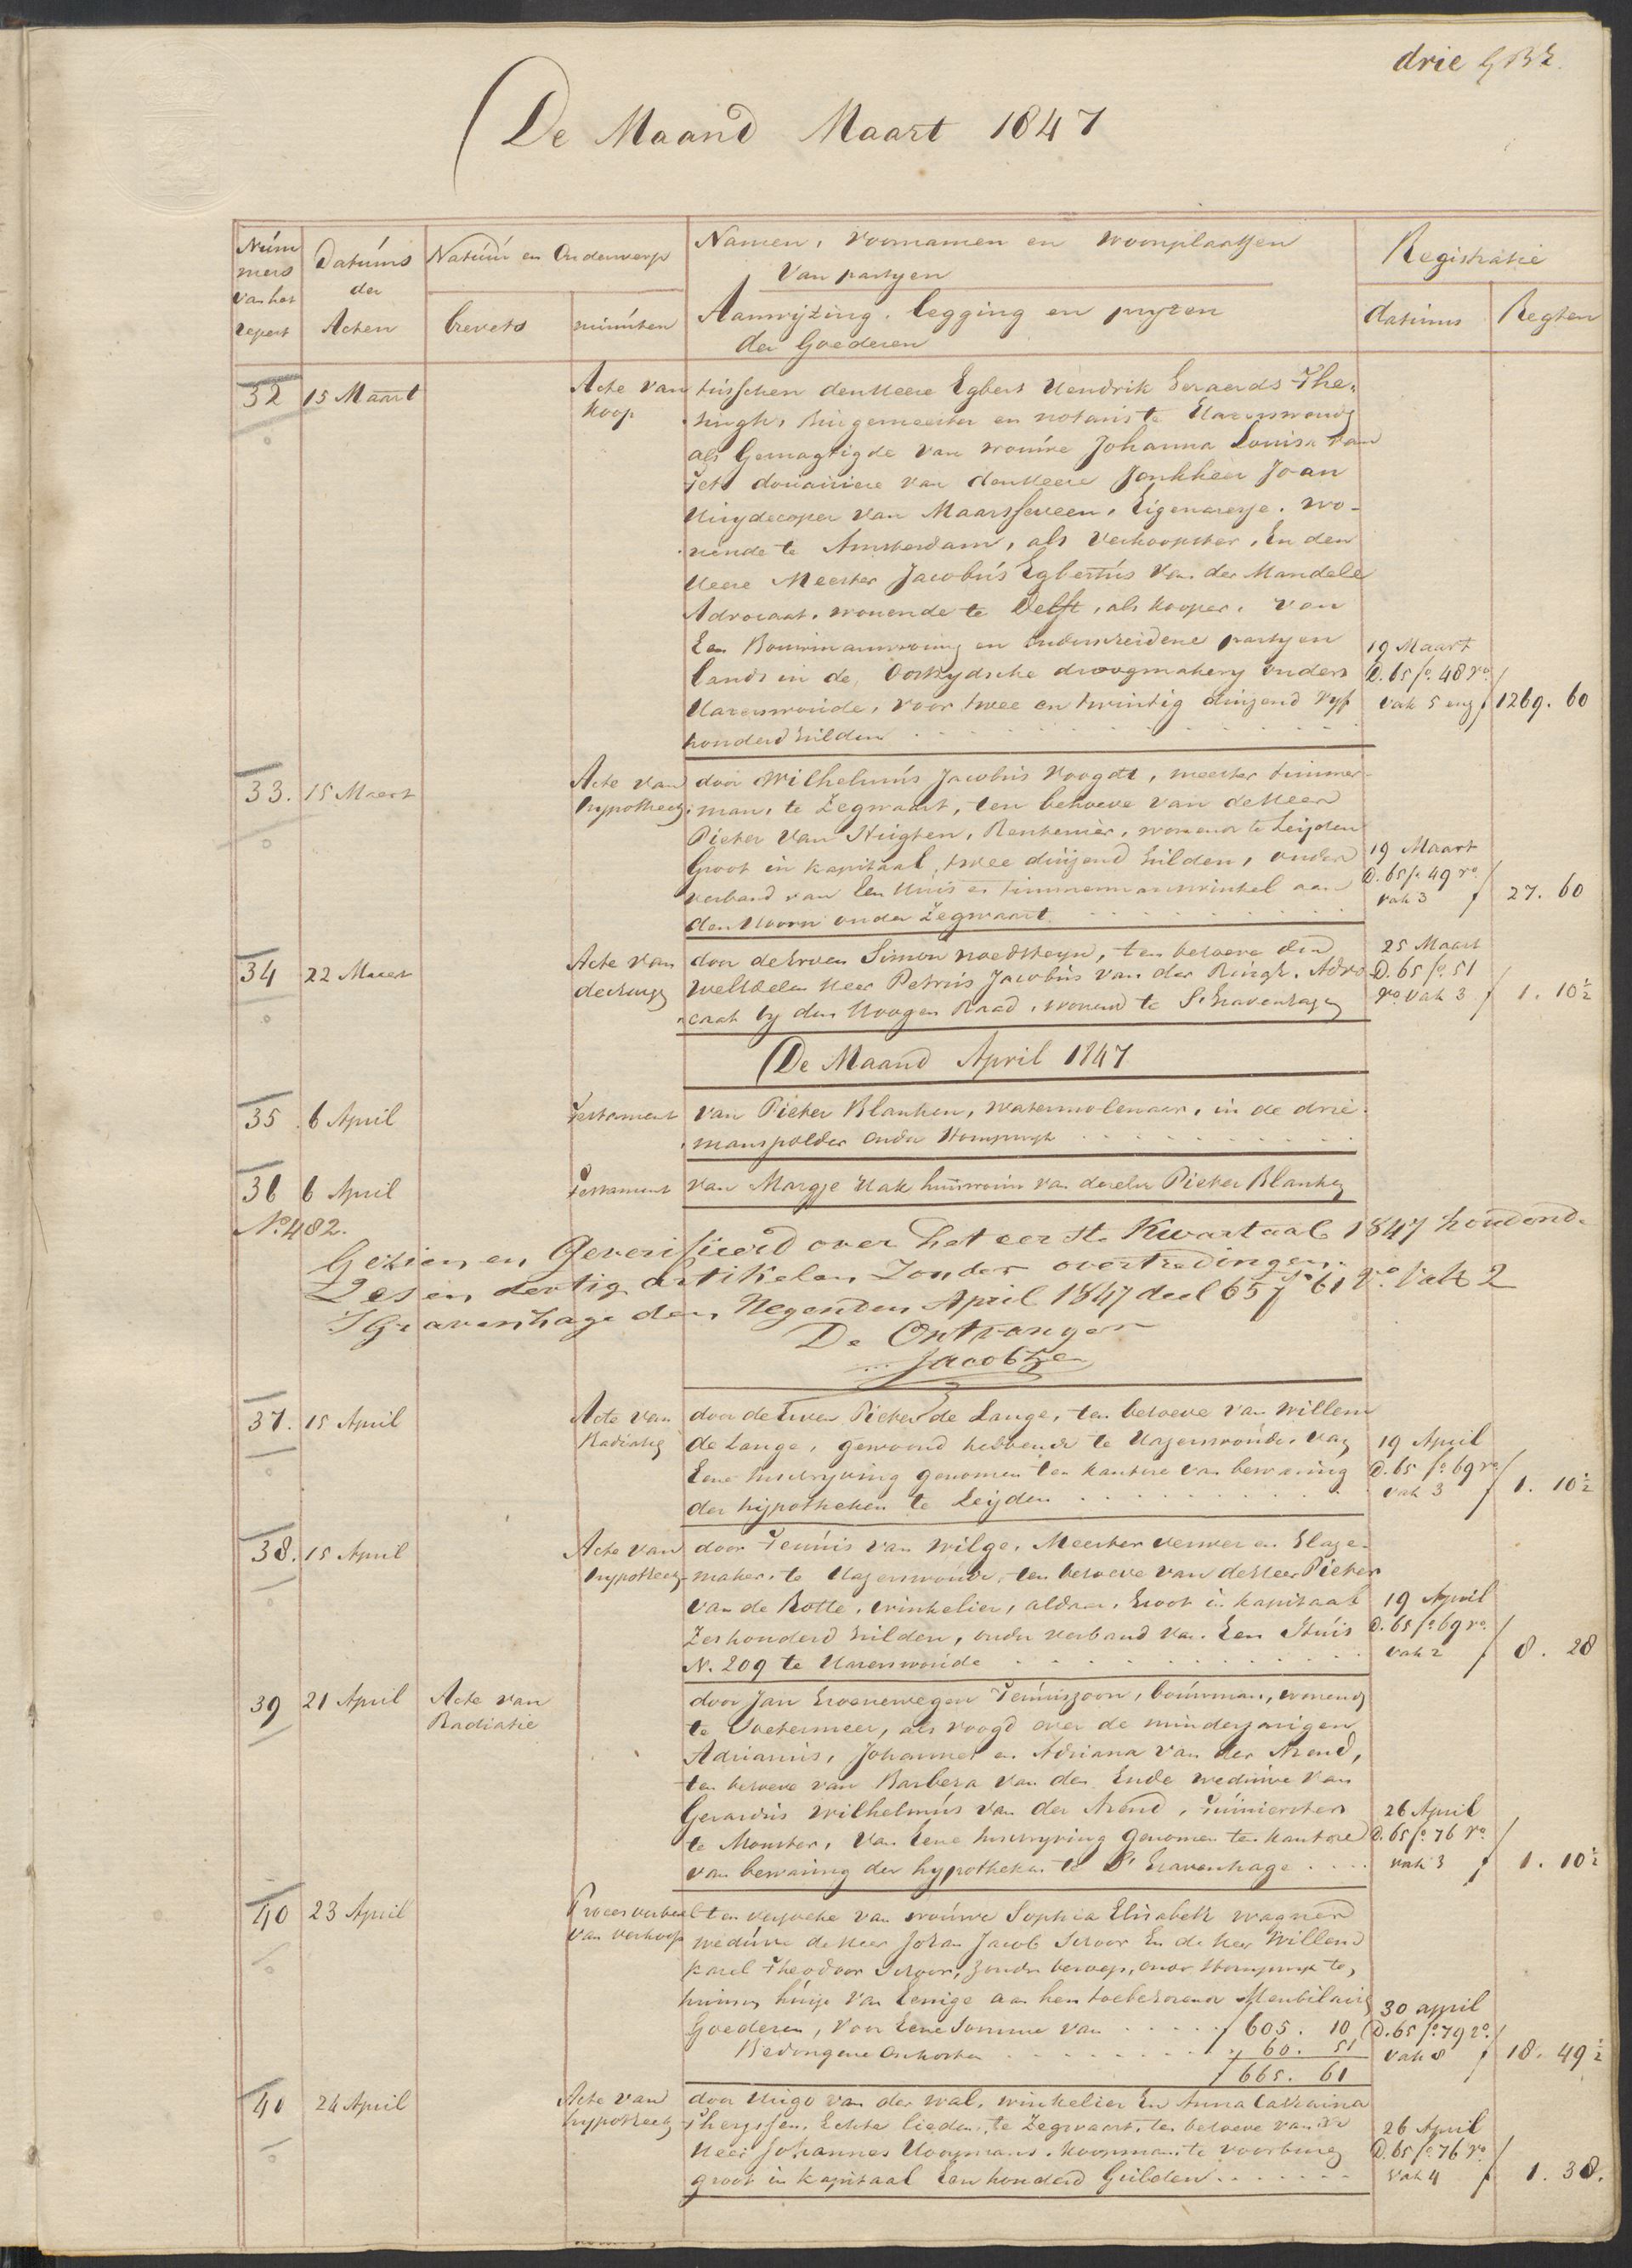 drie
De Maand Maart 1847
Num
mers
van het
repert
Datums
der
Acten
Natuur en Onderwerp
brevets
minuten
Namen, voornamen en woonplaatsen
van partyen
Aanwyzing, legging en pryzen
der Goederen
Registratie
datums
Regten
32
15 Maart
Acte van
koop
tusschen den Heere Egbert Hendrik Gerards The-
singh, burgemeester en notaris te Hazerswoude
als Gemagtigde van vrouwe Johanna Louisa van
douairiere van den Heere Jonkheer Joan
Huydecoper van Maarsseveen, Eigenaresse, wo-
nende te Amsterdam, als Verkoopster, En den
Heere Meester Jacobus Egbertus van der Mandele
Advocaat, wonende te Delft, als kooper, van
Een Bouwmanswoning en onderscheidene partyen
lands in de Oostzydsche droogmakery onder
Hazerswoude, voor twee en twintig duizend vyf
honderd Gulden
19 Maart
D. 65 fo. 48 ro
vak 5 enz
f 1269. 60
33.
15 Maart
Acte van
hypotheek
door Wilhelmus Jacobus Voogdt, meester timmer-
man, te Zegwaart, ten behoeve van de Heer
Pieter van Huigten, Rentenier, wonende te Leyden
Groot in kapitaal, twee duizend Gulden, onder
verband van Een Huis en timmermanswinkel aan
den Hoorn onder Zegwaart
19 Maart
D. 65 fo 49 ro
vak 3
f 27. 60
34
22 Maart
Acte van
decharge
door de Erven Simon noodsteyn, ten behoeve den
WelEdelen Heer Petrus Jacobus van der Burgh, Advo-
caat by den Hoogen Raad, wonend te S'Gravenhage
25 Maart
D. 65 fo. 51
ro. vak 3
f 1. 10½
De Maand April 1847
35
6 April
Testament
van Pieter Blanken, watermolenaar, in de drie-
manspolder onder Stompwyk
36
6 April
Testament
van Margje Hak huisvrouw van dezelve Pieter Blanken
No. 482.
Gezien en Geverifieerd over het eerste Kwartaal 1847 houdende
Zes en dertig artikelen zonder overtredingen.
S'Gravenhage den Negenden April 1847 deel 65 fo 61 Vo. Vak 2
De Ontvanger
Jacobze
37.
15 April
Acte van
Radiatie
door de Erven Pieter de Lange, ten behoeve van Willem
de Lange, gewoond hebbende te Hazerswoude, van
Eene Inschryving genomen ten kantore van bewaring
der hypotheken te Leyden
19 April
D. 65 fo 69 ro
vak 3
f 1. 10½
38.
15 April
Acte van
hypotheek
door Teunis van Wilge, Meester verwer en Glaze-
maker, te Hazerswoude, ten behoeve van de Heer Pieter
van de Rotte, winkelier, aldaar, Groot in kapitaal
Zeshonderd Gulden, onder verband van Een Huis
N. 209 te Hazerswoude
19 April
D. 65 fo 69 ro.
vak 2
f 8. 28
39
21 April
Acte van
Radiatie
door Jan Groenewegen Teuniszoon, bouwman, wonend
te Soetermeer, als voogd over de minderjarigen
Adrianus, Johannes en Adriana van der Arend,
ten behoeve van Barbera van den Ende weduwe van
Gerardus Wilhelmus van der Arend, Tuinierster
te Monster, van Eene Inschryving Genomen ten kantore
van bewaring der hypotheken te S'Gravenhage
26 April
D. 65 fo. 76 ro.
vak 3
f 1. 10½
40
23 April
Procesverbaal
van verkoop
ten verzoeke van vrouwe Sophia Elisabeth Wagner
weduwe de Heer Johan Jacob Schoor En de Heer Willem
Karel Theodoor Schoor, zonder beroep, onder Stompwyk te,
hunnen huize van Eenige aan hen toebehoorende Meubilaire
Goederen, voor Eene Somme van f 605. 10
Bedongene Onkosten " 60. 51
f 665. 61
30 april
D. 65 fo. 79 ro.
vak 8
f 18. 49½
40
24 April
Acte van
hypotheek
door Hugo van der Wal, winkelier En Anna Catharina
Theyssen, Echte lieden, te Zegwaart, ten behoeve van de
Heer Johannes Hooymans, koopman te Voorburg
groot in kapitaal Een honderd Gulden
26 April
D. 65 fo. 76 ro.
vak 4
f 1. 38.